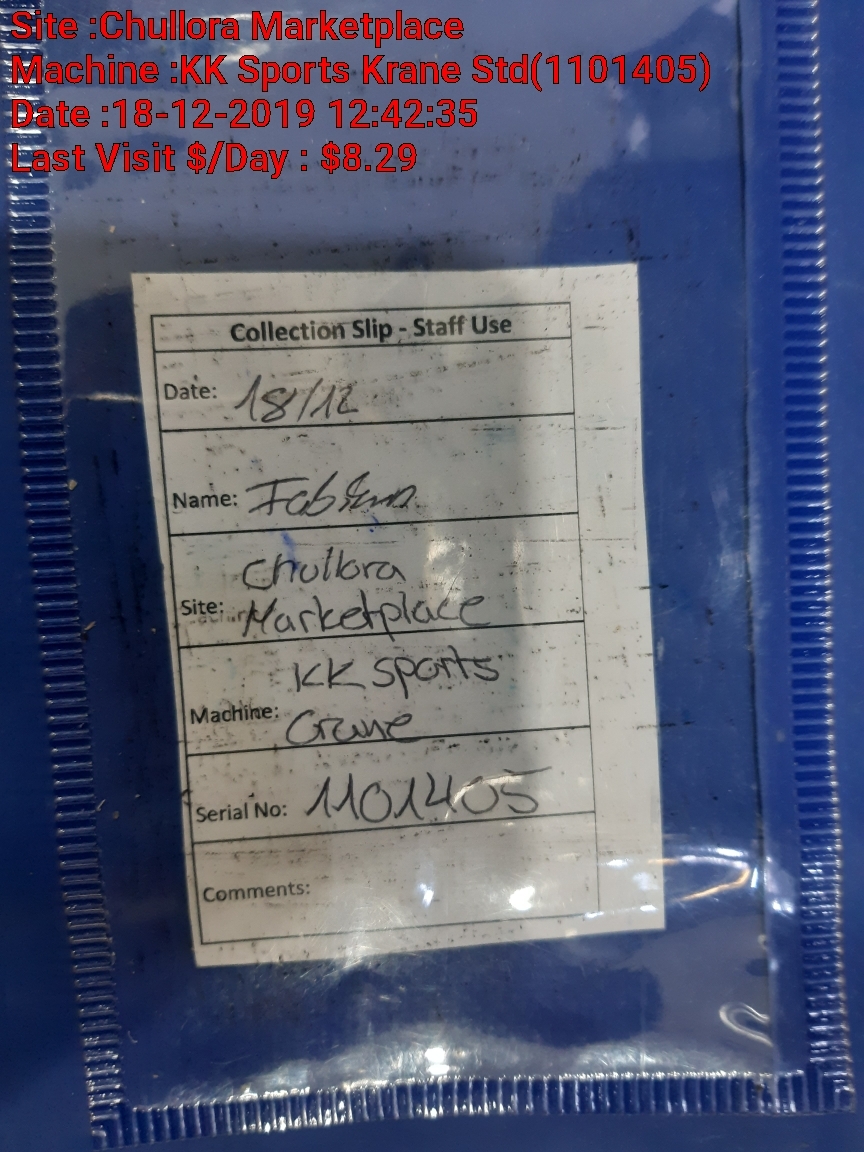 Site :Chullora Marketplace
Machine :KK Sports Krane Std(1101405)
Date :18-12-2019 12:42:35
Last Visit $/Day : $8.29
Collection Slip - Staff Use
Date: 18/12
Name:
Site: Chullora
Marketplace
Machine: KK sports
Crane
Serial No: 1101405
Comments: